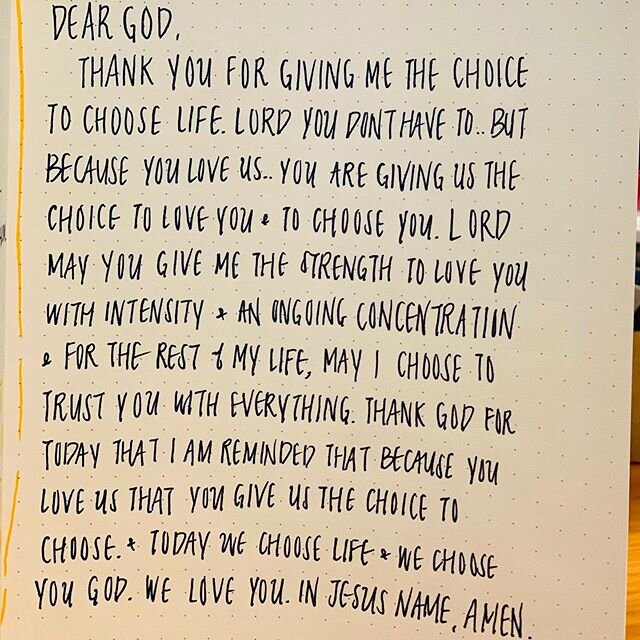 DEAR GOD,
THANK YOU FOR GIVING ME THE CHOICE
TO CHOOSE LIFE. LORD YOU DONT HAVE TO.. BUT
BECAUSE YOU LOVE US.. YOU ARE GIVING US THE
CHOICE TO LOVE YOU & TO CHOOSE YOU. LORD
MAY YOU GIVE ME THE STRENGTH TO LOVE YOU
WITH INTENSITY & AN ONGOING CONCENTRATION
& FOR THE REST of MY LIFE, MAY I CHOOSE TO
TRUST YOU WITH EVERYTHING. THANK GOD FOR
TODAY THAT I AM REMINDED THAT BECAUSE YOU
LOVE US THAT YOU GIVE US THE CHOICE TO
CHOOSE. & TODAY WE CHOOSE LIFE & WE CHOOSE
YOU GOD. WE LOVE YOU. IN JESUS NAME, AMEN.